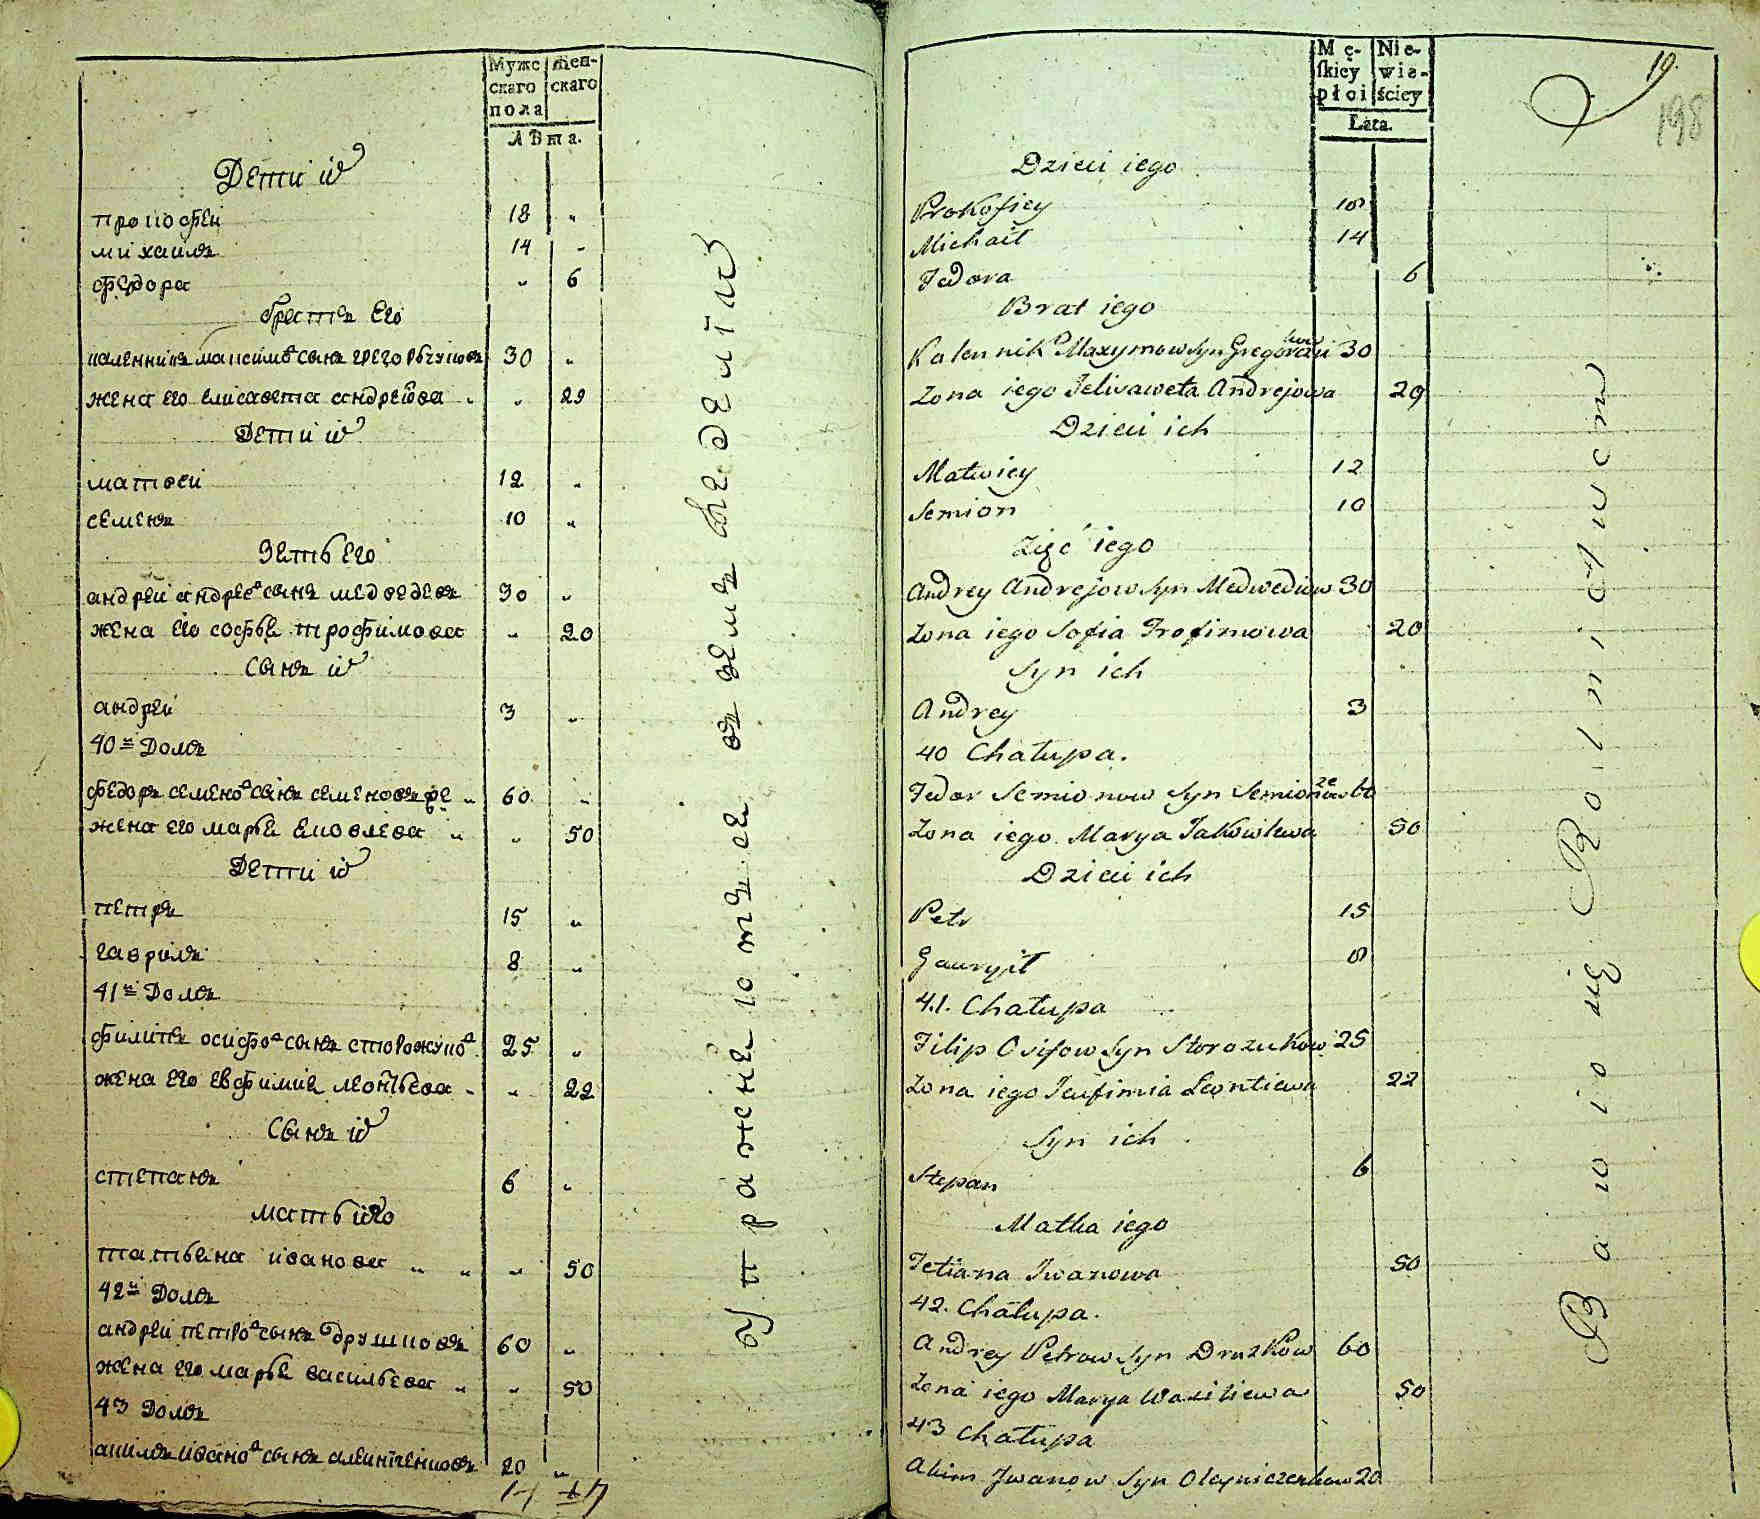 Мужс
скаго
пола
Жен-
скаго
Лѣта.
Дети их
прокофеи 18 "
михаилъ 14 "
федора " 6
братъ Его
каленникъ максимовъ сынъ грегорьчуковъ 30 "
жена его елисавета андреива " 29
Дети их
матвеи 12 "
семенъ 10 "
Зеть Его
андреи андреевъ сынъ медведевъ 30 "
жена его софья трофимова " 20
Сынъ их
андреи 3 "
40й Домъ
федоръ семеновъ сынъ семеновъ 60 "
жена его марья яковлева " 50
Дети их
петръ 15 "
гаврилъ 8 "
41й Домъ
филипъ осифовъ сынъ сторожуков 25 "
жена его евфимия леонтьева " 22
Сынъ их
степанъ 6 "
мать его
татьяна иванова " 50
42й Домъ
андреи петровъ сынъ друшковъ 60 "
жена его марья васильева " 50
43 Домъ
акимъ иванов сынъ алеиниченковъ 20 "
17 17
упражняются въ земледелии
Mę-
skiey
płci
Nie-
wie-
ściey
Lata.
19.
198
Dzieci iego
Prokofiey 18
Michaił 14
Fedora 6
Brat iego
Kalennik Maxymow Syn Gregorczukow 30
Zona iego Jelisaweta Andrejowa 29
Dzieci ich
Matwiey 12
Semion 10
Zięć iego
Andrey Andrejow Syn Medwediow 30
Zona iego Sofia Trofimowa 20
Syn ich
Andrey 3
40 Chałupa.
Fedor Semionow Syn Semionow 60
Zona iego Marya Jakowlewa 50
Dzieci ich
Petr 15
Gawryił 8
41. Chałupa
Filip Osifow Syn Storozukow 25
Zona iego Jeufimia Leontiewa 22
Syn ich
Stepan 6
Matka iego
Tetiana Iwanowa 50
42. Chałupa.
Andrey Petrow Syn Druzkow 60
Zona iego Marya Wasiliewa 50
43 Chałupa
Akim Iwanow Syn Oleyniczenkow 20
Bawio się Rolnictwem